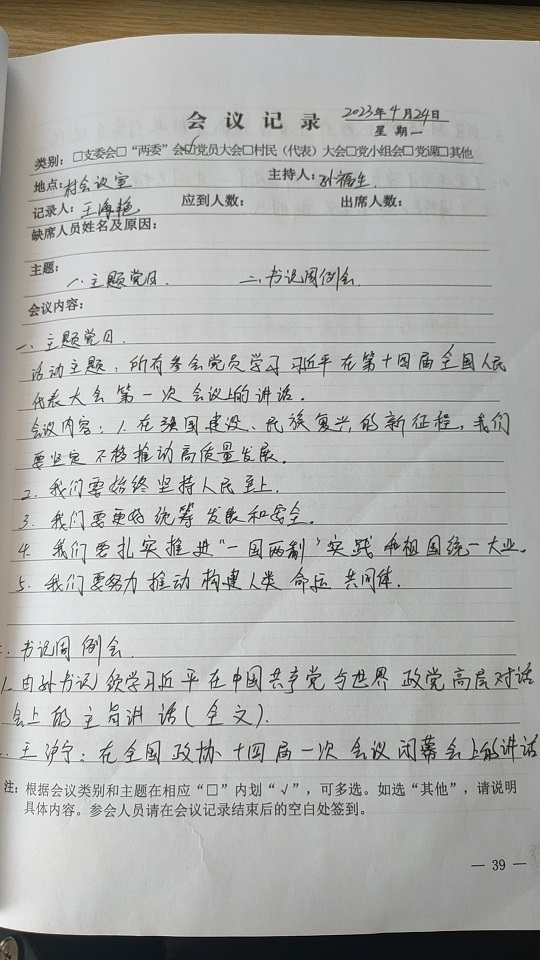 会议记录 2023年4月24日
星期一
类别：□支委会□“两委”会☑党员大会□村民（代表）大会□党小组会□党课□其他
地点：村会议室 主持人：孙福生
记录人：王海艳 应到人数： 出席人数：
缺席人员姓名及原因：
主题：
一、主题党日. 二、书记周例会.
会议内容：
一、主题党日.
活动主题：所有参会党员学习习近平在第十四届全国人民
代表大会第一次会议上的讲话.
会议内容：1.在强国建设、民族复兴的新征程，我们
要坚定不移推动高质量发展.
2. 我们要始终坚持人民至上.
3. 我们要更好统筹发展和安全.
4. 我们要扎实推进“一国两制”实践和祖国统一大业.
5. 我们要努力推动构建人类命运共同体.
书记周例会.
1. 由孙书记领学习近平在中国共产党与世界政党高层对话
会上的主旨讲话(全文).
王沪宁：在全国政协十四届一次会议闭幕会上的讲话
注：根据会议类别和主题在相应“□”内划“√”，可多选。如选“其他”，请说明
具体内容。参会人员请在会议记录结束后的空白处签到。
— 39 —